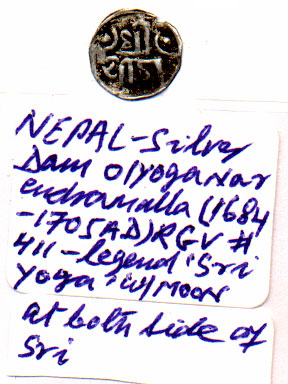 श्री
योग
NEPAL-Silver
Dam O/YogaNar
endramalla (1684
-1705AD) RGV #
411-legend 'Sri
Yoga' w/Moon
at both side of
Sri